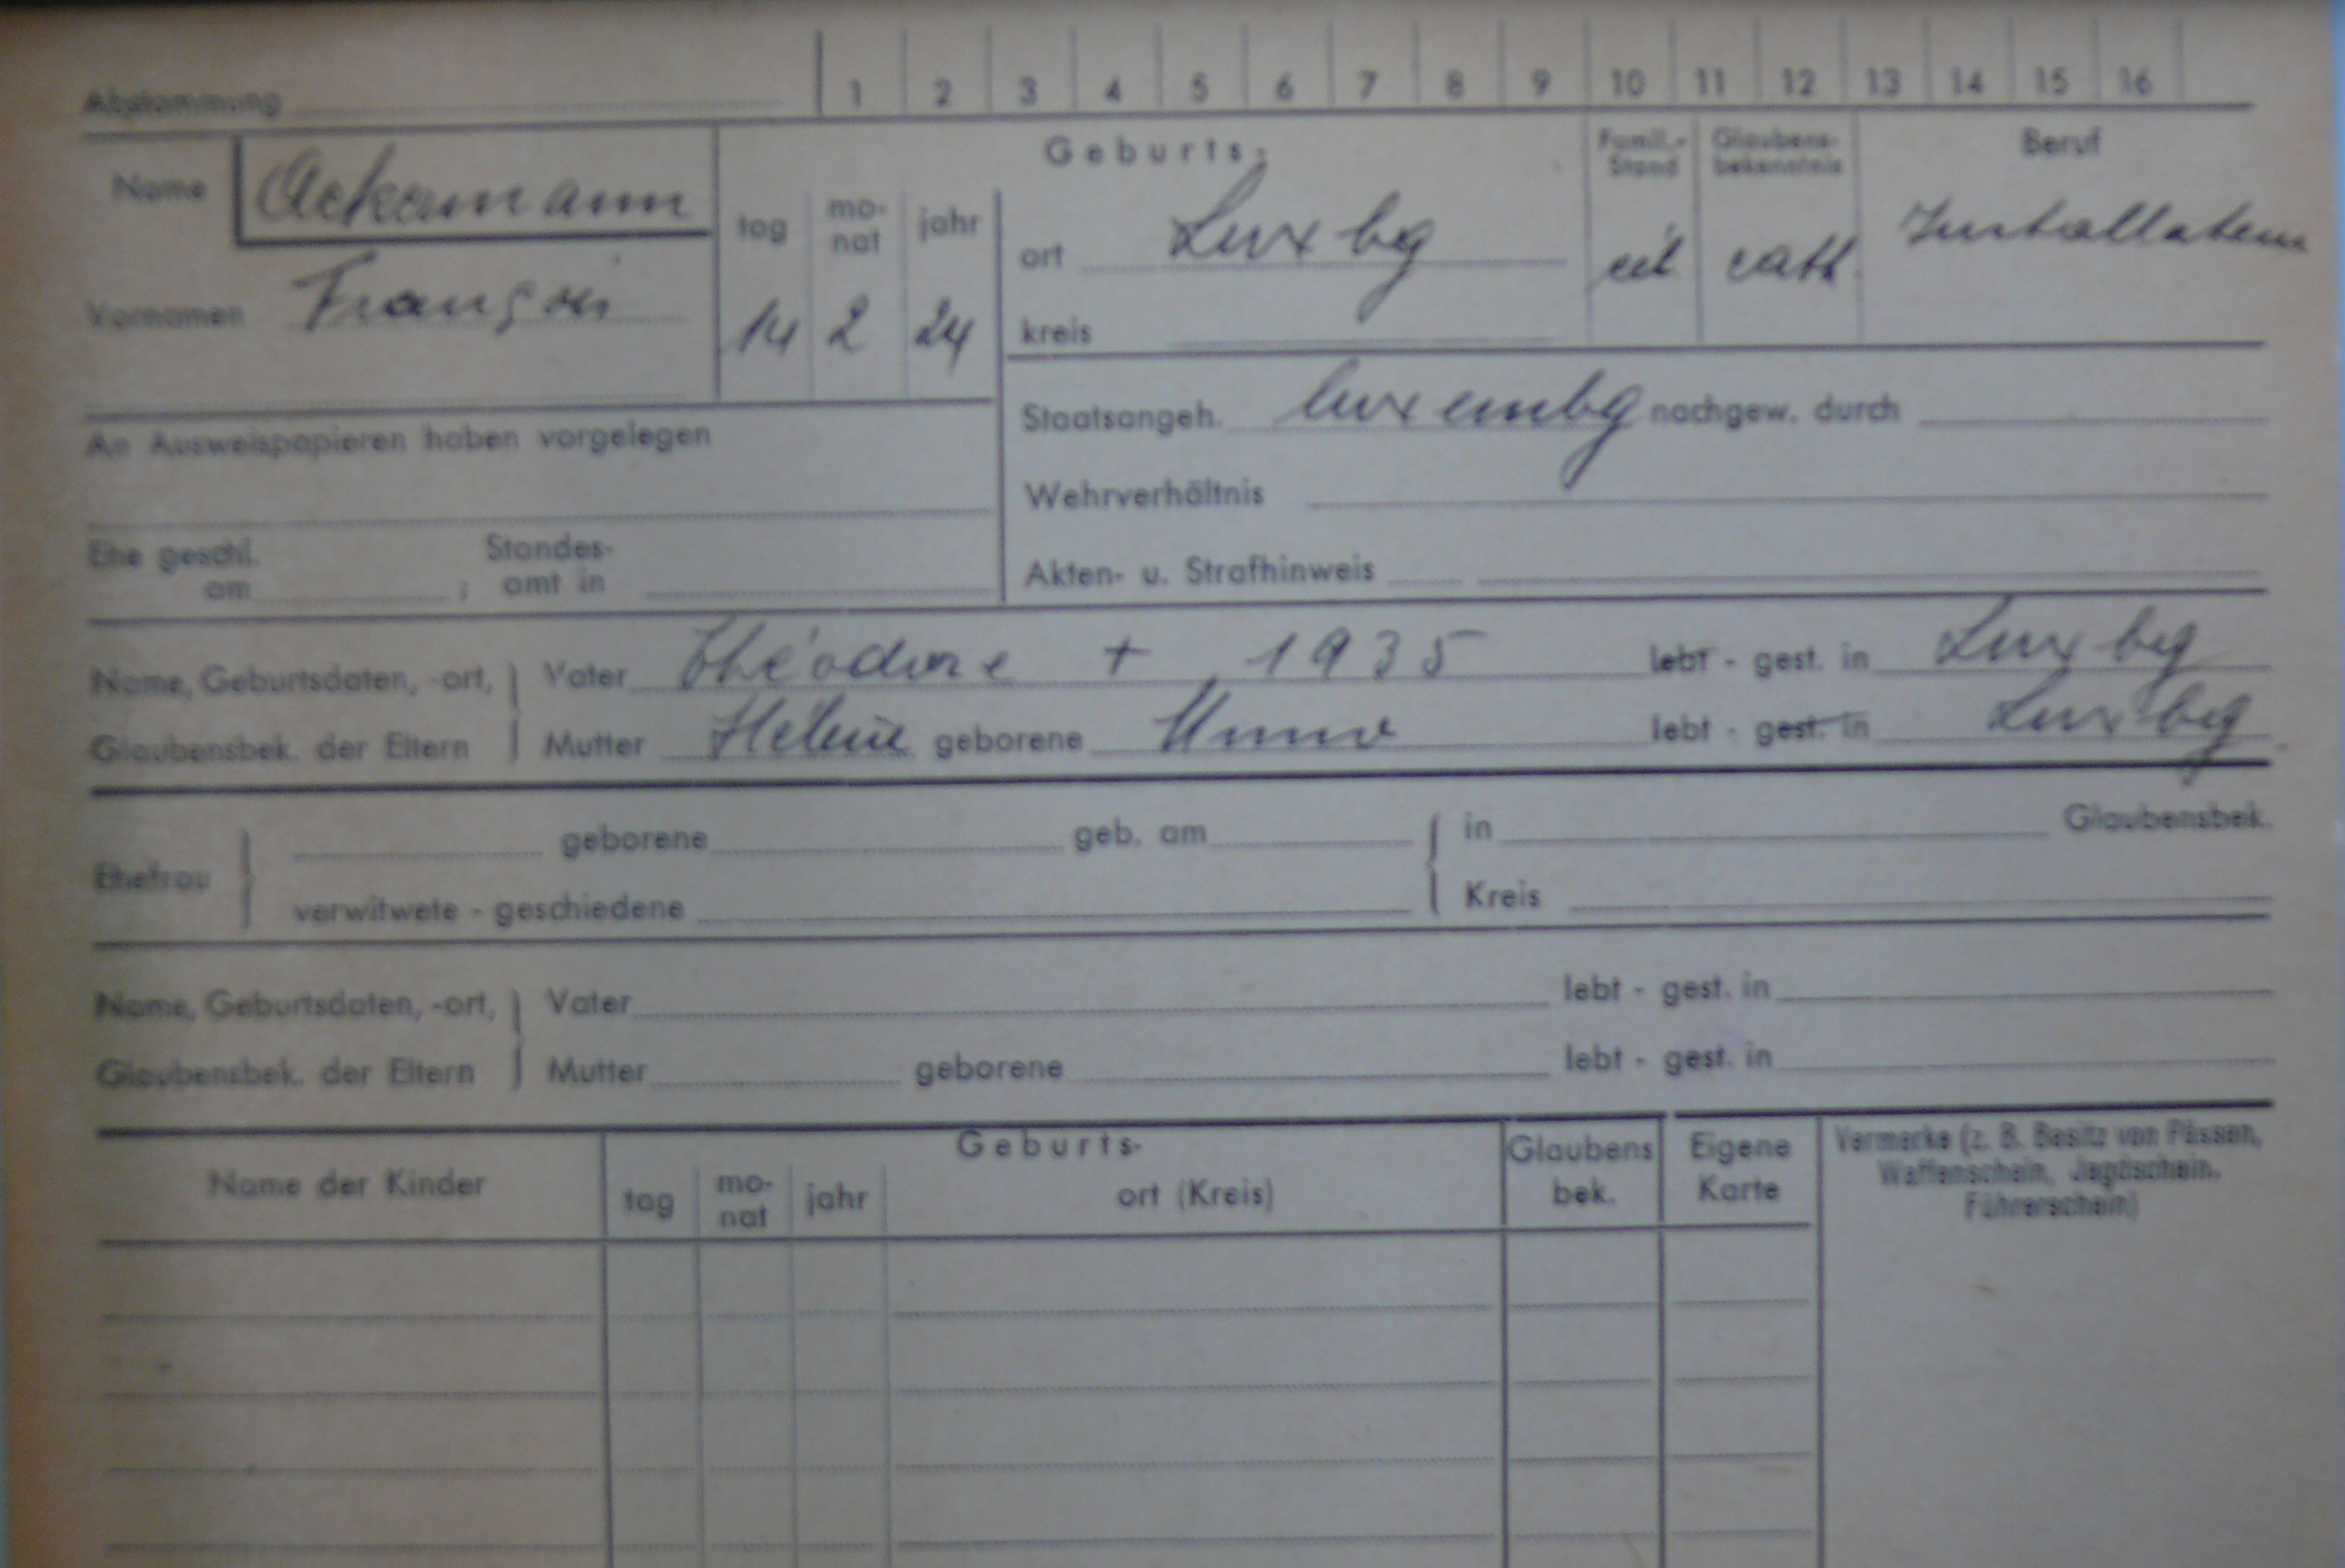 Abstammung 1 2 3 4 5 6 7 8 9 10 11 12 13 14 15 16
Name Ackermann
Vornamen François
Geburts-
tag mo-nat jahr
14 2 24
ort Luxbg
kreis
Famil.-Stand
cél
Glaubens-bekenntnis
cath.
Beruf
Installateur
An Ausweispapieren haben vorgelegen
Staatsangeh. luxembg nachgew. durch
Wehrverhältnis
Ehe geschl. am ; Standes-amt in
Akten- u. Strafhinweis
Name, Geburtsdaten, -ort, Vater Théodore + 1935 lebt - gest. in Luxbg
Glaubensbek. der Eltern Mutter Hélène geborene lebt - gest. in Luxbg
Ehefrau
geborene geb. am in Glaubensbek.
verwitwete - geschiedene Kreis
Name, Geburtsdaten, -ort, Vater lebt - gest. in
Glaubensbek. der Eltern Mutter geborene lebt - gest. in
Name der Kinder
Geburts-
tag mo-nat jahr ort (Kreis)
Glaubens bek.
Eigene Karte
Vermerke (z. B. Besitz von Pässen,
Waffenschein, Jagdschein,
Führerschein)